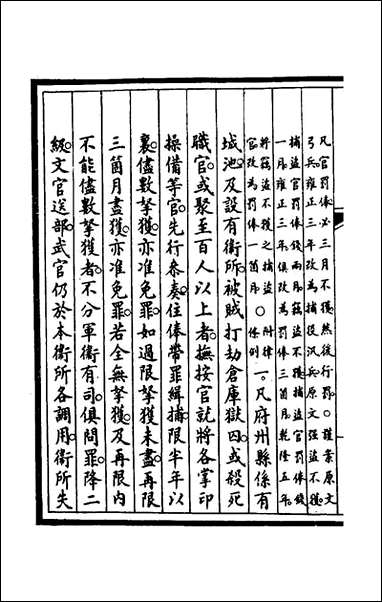 凡官罰俸必三月不獲然後行罰○謹案原文
弓兵雍正三年改為捕役汛兵原文强盜不獲
捕盜官罰俸錢兩月竊盜不獲捕盜官罰俸錢
一月雍正三年俱改為罰俸三箇月乾隆五年
將竊盜不獲之捕盜○附律
官改為罰俸一箇月○條例
一。凡府州縣係有
城池及設有衛所被賊打劫倉庫獄囚。或殺死
職官。或聚至百人以上者。撫按官就將各掌印
操備等官先行叅奏。住俸帶罪緝捕。限半年以
裏。儘數拏獲。亦准免罪。如過限拏獲未盡。再限
三箇月盡獲。亦准免罪。若全無拏獲。及再限內
不能儘數拏獲者。不分軍衛有司。俱問罪。降二
級。文官送部。武官仍於本衛所各調用。衛所失